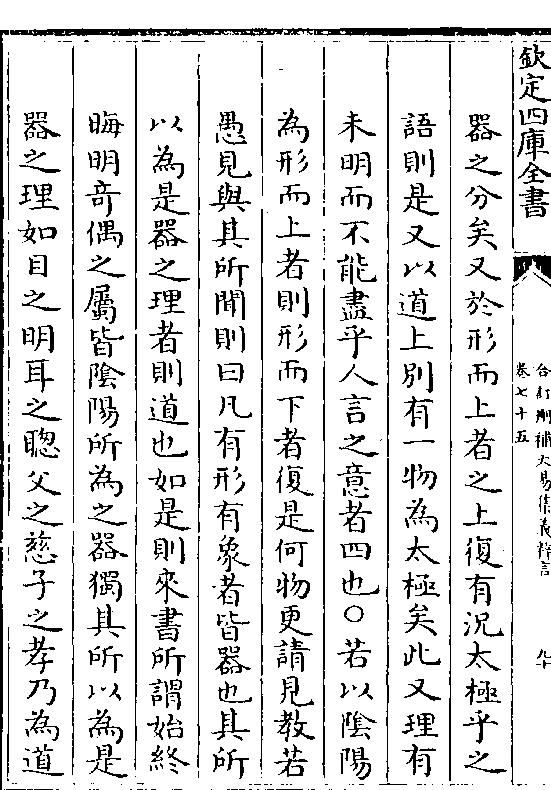 欽定四庫全書
合訂刪補大易集義粹言
卷七十五
九十
器之分矣又於形而上者之上復有況太極乎之
語則是又以道上別有一物為太極矣此又理有
未明而不能盡乎人言之意者四也○若以陰陽
為形而上者則形而下者復是何物更請見教若
愚見與其所聞則曰凡有形有象者皆器也其所
以為是器之理者則道也如是則來書所謂始終
晦明奇偶之屬皆陰陽所為之器獨其所以為是
器之理如目之明耳之聰父之慈子之孝乃為道